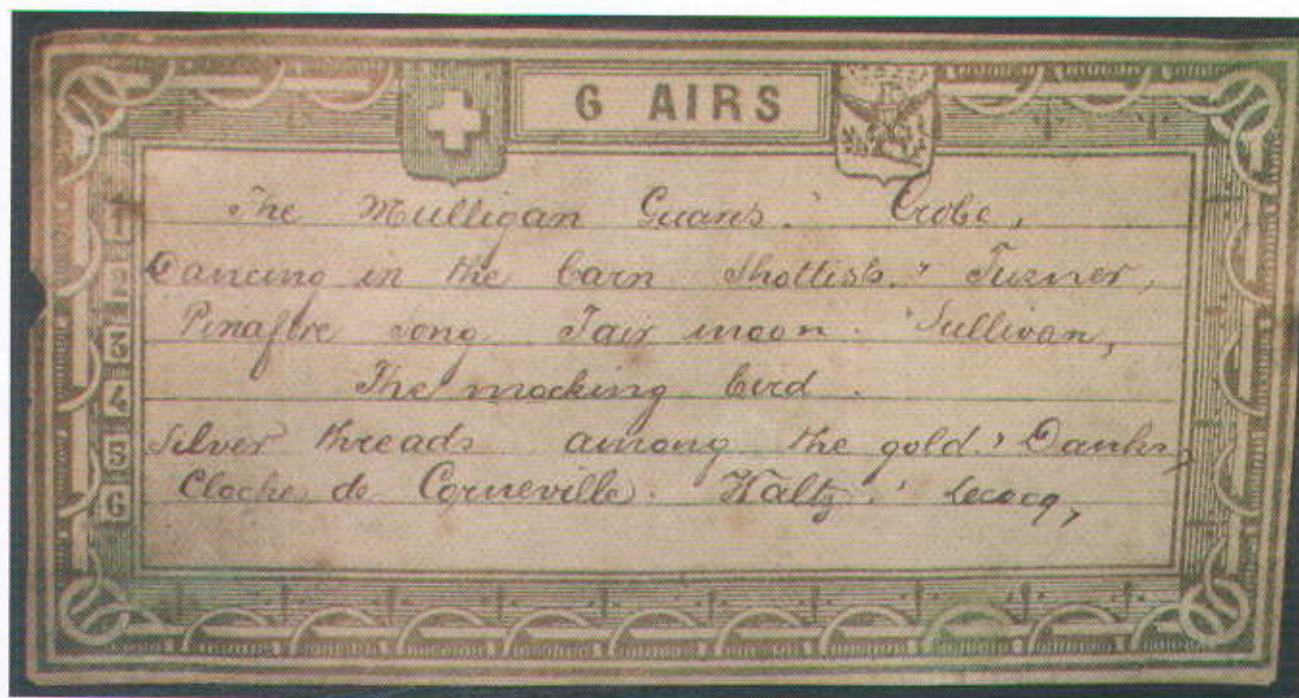 6 AIRS
1 The Mulligan Guars. Grobe,
2 Dancing in the barn Shottish. " Turner,
3 Pinafore song Fair moon. Sullivan,
4 The mocking bird.
5 Silver threads among the gold. Danks,
6 Cloche de Corneville. Waltz. Lecocq,